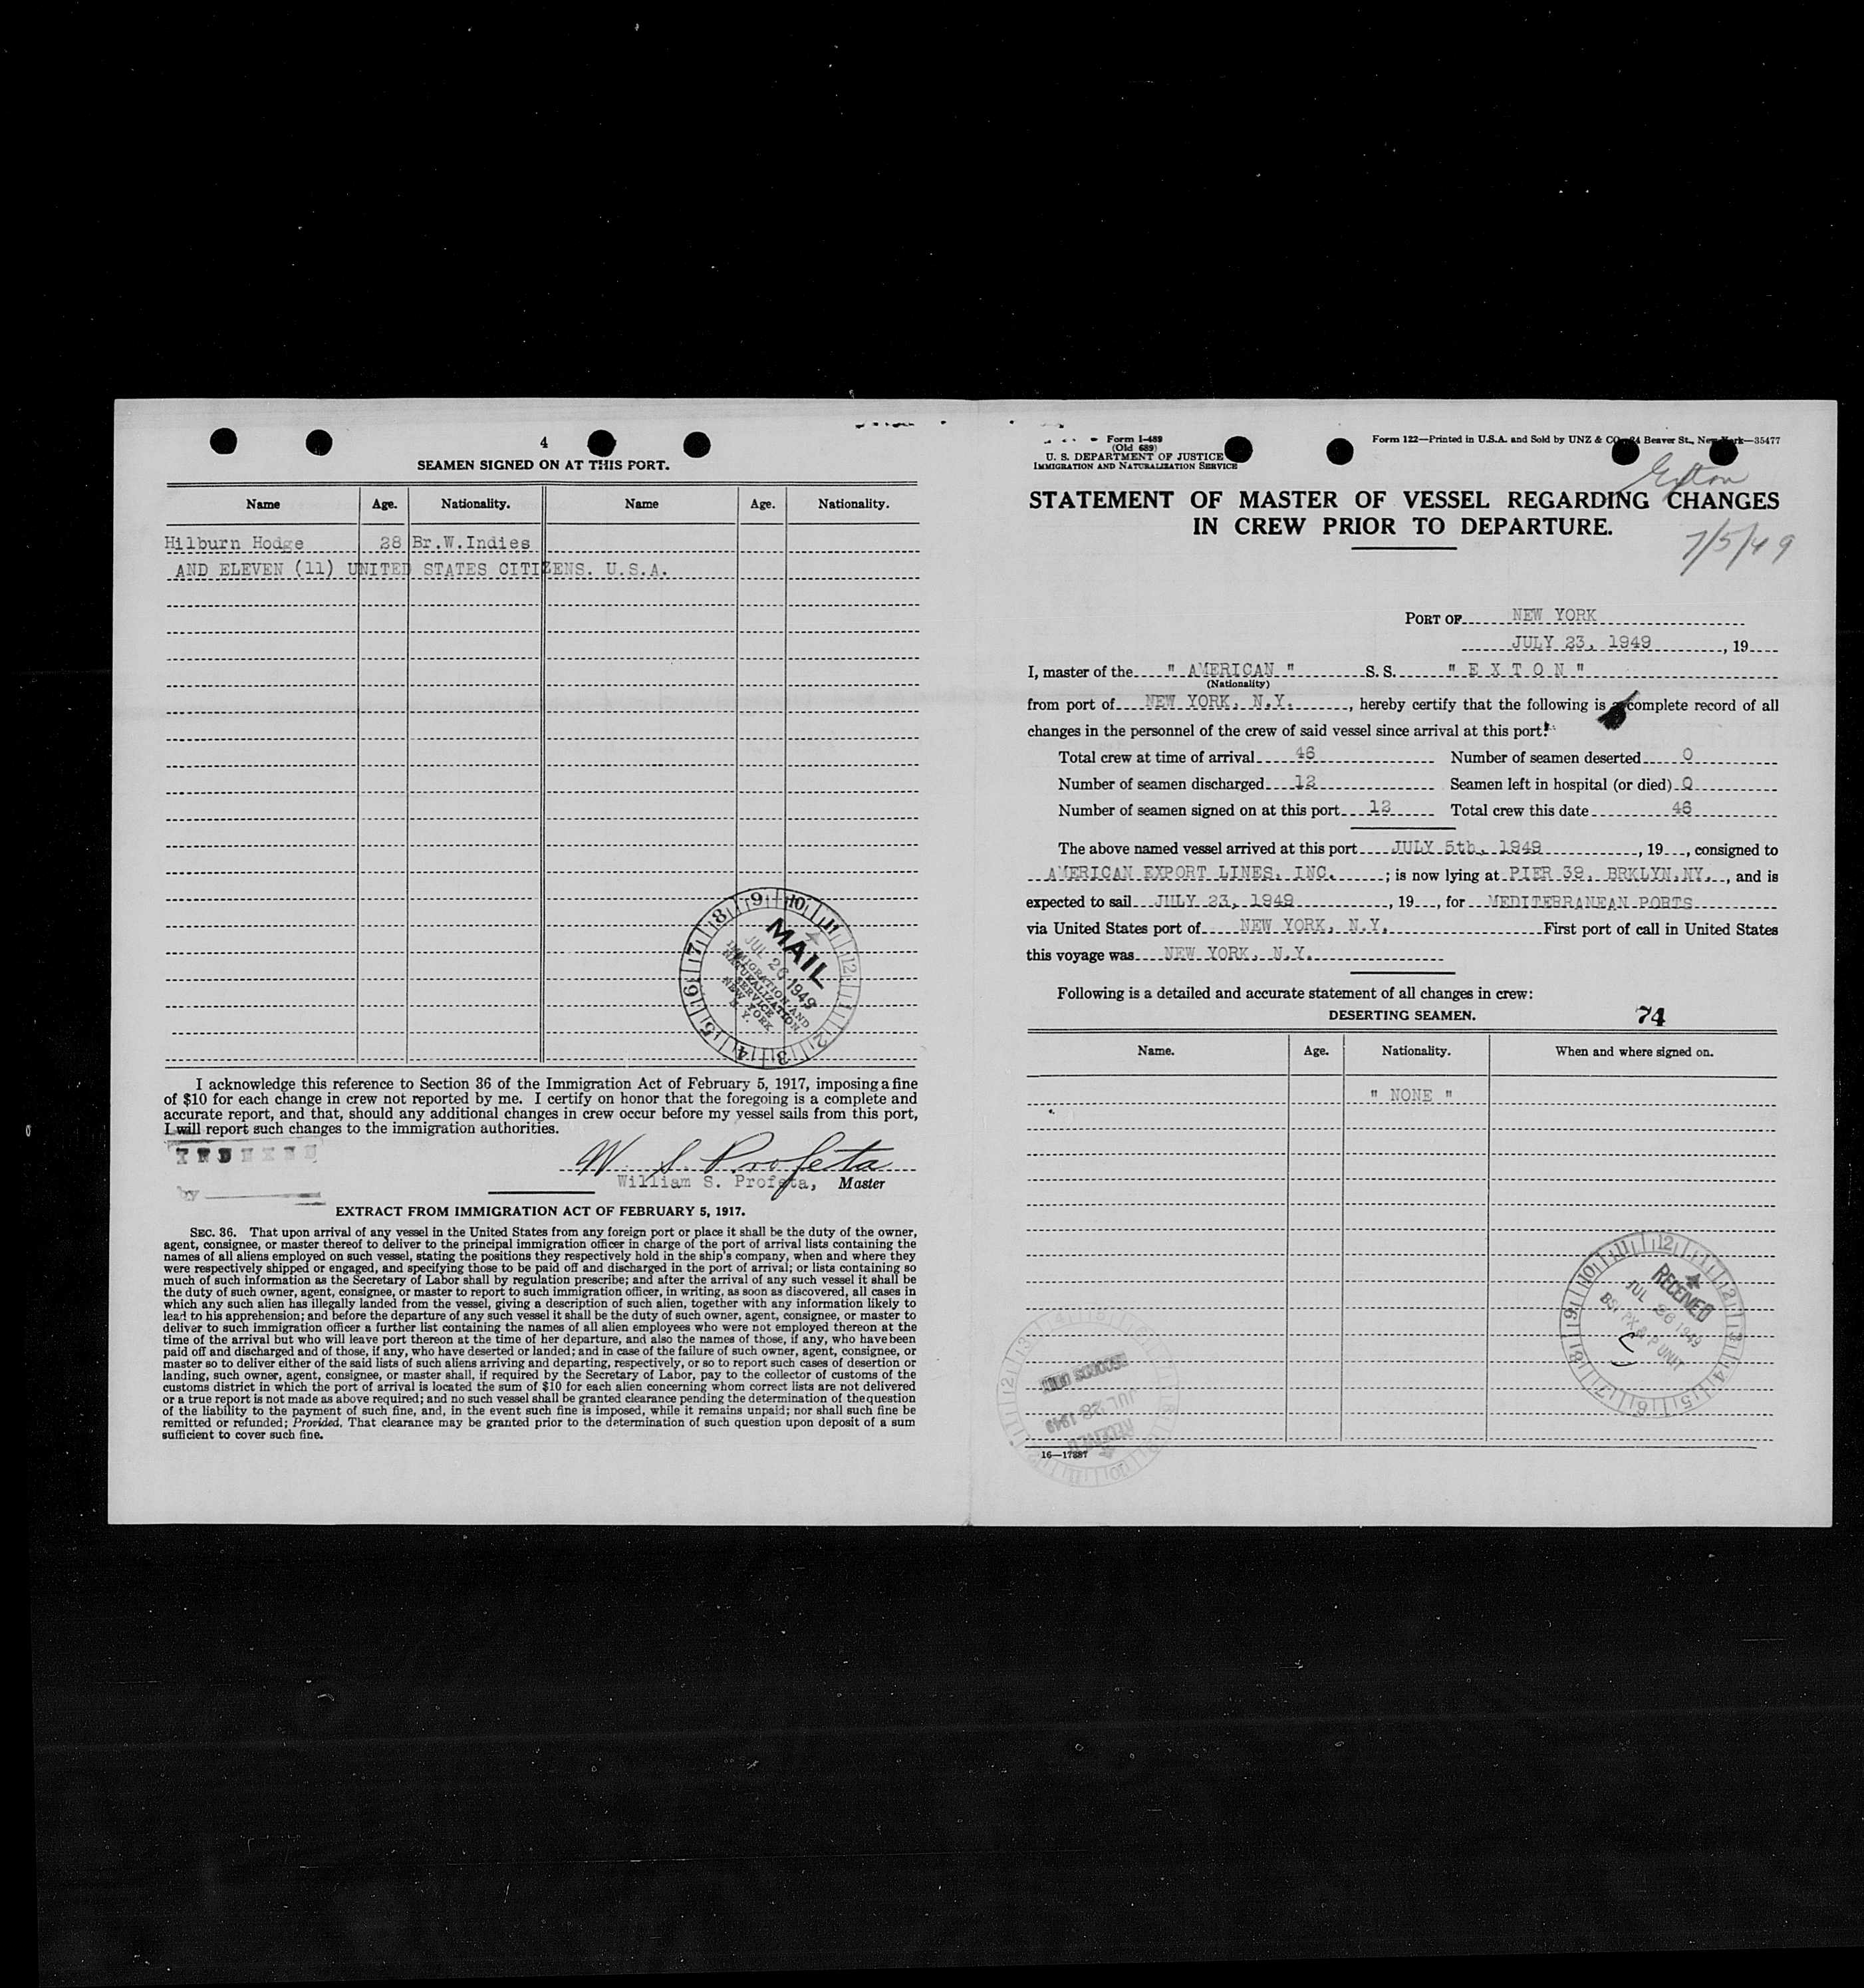 4
SEAMEN SIGNED ON AT THIS PORT.
Name Age. Nationality. Name Age. Nationality.
Hilburn Hodge 28 Br.W.Indies
AND ELEVEN (11) UNITED STATES CITIZENS. U.S.A.
MAIL
JUL 26 1949
IMMIGRATION AND
NATURALIZATION
SERVICE
NEW YORK
N. Y.
I acknowledge this reference to Section 36 of the Immigration Act of February 5, 1917, imposing a fine
of $10 for each change in crew not reported by me. I certify on honor that the foregoing is a complete and
accurate report, and that, should any additional changes in crew occur before my vessel sails from this port,
I will report such changes to the immigration authorities.
W. S. Profeta
by
William S. Profeta, Master
EXTRACT FROM IMMIGRATION ACT OF FEBRUARY 5, 1917.
SEC. 36. That upon arrival of any vessel in the United States from any foreign port or place it shall be the duty of the owner,
agent, consignee, or master thereof to deliver to the principal immigration officer in charge of the port of arrival lists containing the
names of all aliens employed on such vessel, stating the positions they respectively hold in the ship's company, when and where they
were respectively shipped or engaged, and specifying those to be paid off and discharged in the port of arrival; or lists containing so
much of such information as the Secretary of Labor shall by regulation prescribe; and after the arrival of any such vessel it shall be
the duty of such owner, agent, consignee, or master to report to such immigration officer, in writing, as soon as discovered, all cases in
which any such alien has illegally landed from the vessel, giving a description of such alien, together with any information likely to
lead to his apprehension; and before the departure of any such vessel it shall be the duty of such owner, agent, consignee, or master to
deliver to such immigration officer a further list containing the names of all alien employees who were not employed thereon at the
time of the arrival but who will leave port thereon at the time of her departure, and also the names of those, if any, who have been
paid off and discharged and of those, if any, who have deserted or landed; and in case of the failure of such owner, agent, consignee, or
master so to deliver either of the said lists of such aliens arriving and departing, respectively, or so to report such cases of desertion or
landing, such owner, agent, consignee, or master shall, if required by the Secretary of Labor, pay to the collector of customs of the
customs district in which the port of arrival is located the sum of $10 for each alien concerning whom correct lists are not delivered
or a true report is not made as above required; and no such vessel shall be granted clearance pending the determination of the question
of the liability to the payment of such fine, and, in the event such fine is imposed, while it remains unpaid; nor shall such fine be
remitted or refunded; Provided, That clearance may be granted prior to the determination of such question upon deposit of a sum
sufficient to cover such fine.
Form I-489
(Old 689)
U. S. DEPARTMENT OF JUSTICE
IMMIGRATION AND NATURALIZATION SERVICE
Form 122—Printed in U.S.A. and Sold by UNZ & CO., 24 Beaver St., New York—35477
Exton
STATEMENT OF MASTER OF VESSEL REGARDING CHANGES
IN CREW PRIOR TO DEPARTURE.
7/5/49
PORT OF NEW YORK
JULY 23, 1949, 19
I, master of the " AMERICAN " S. S. " E X T O N "
(Nationality)
from port of NEW YORK, N.Y., hereby certify that the following is a complete record of all
changes in the personnel of the crew of said vessel since arrival at this port:
Total crew at time of arrival 46 Number of seamen deserted 0
Number of seamen discharged 12 Seamen left in hospital (or died) 0
Number of seamen signed on at this port 12 Total crew this date 46
The above named vessel arrived at this port JULY 5th, 1949, 19, consigned to
AMERICAN EXPORT LINES, INC.; is now lying at PIER 39, BRKLYN,NY., and is
expected to sail JULY 23, 1949, 19, for MEDITERRANEAN PORTS
via United States port of NEW YORK, N.Y. First port of call in United States
this voyage was NEW YORK, N.Y.
Following is a detailed and accurate statement of all changes in crew:
DESERTING SEAMEN. 74
Name. Age. Nationality. When and where signed on.
" NONE "
RECEIVED
JUL 26 1949
RECEIVED
JUL 28 1949
16—17887